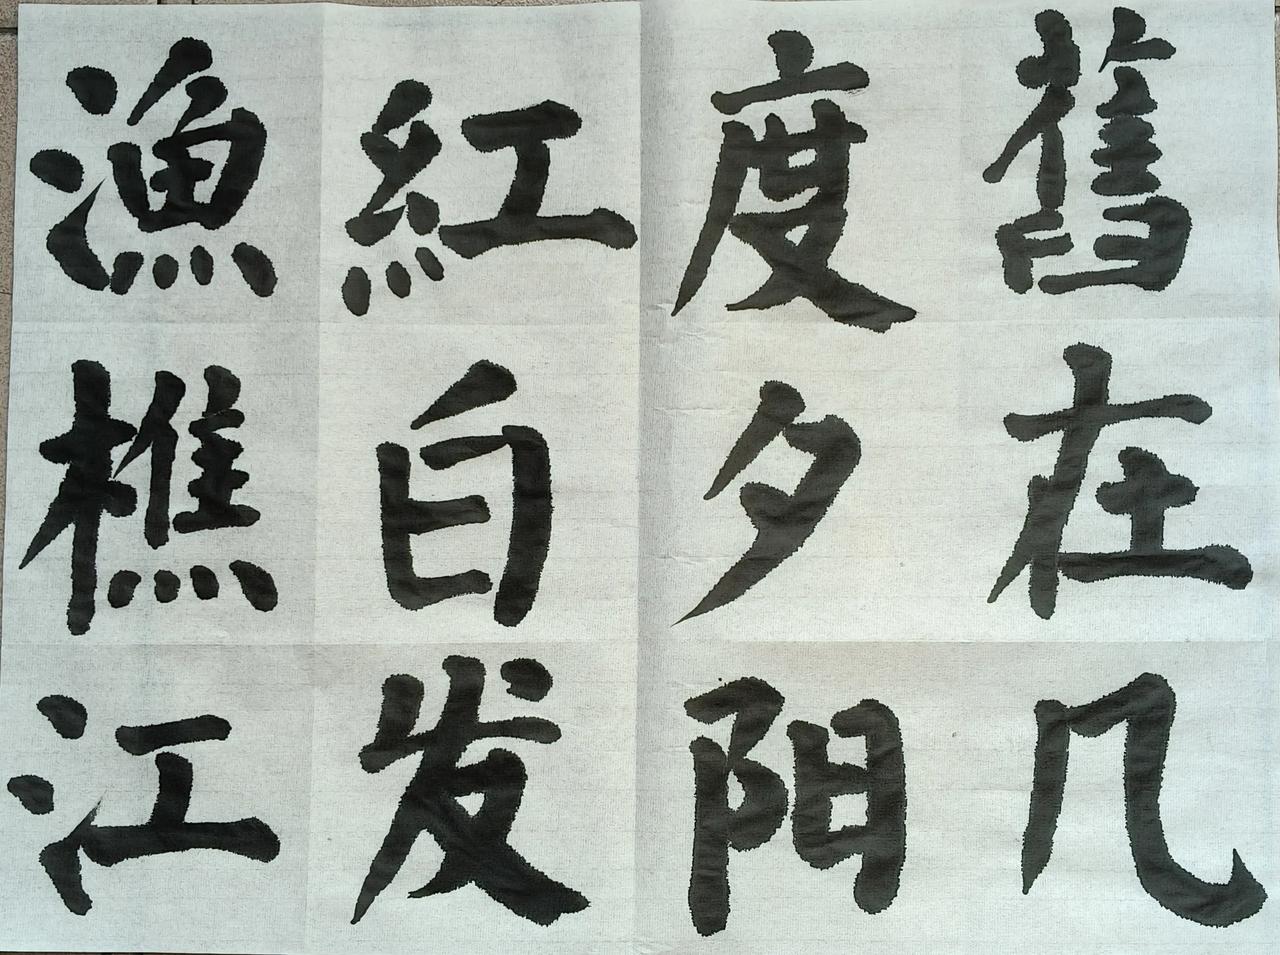 舊在几
度夕阳
紅白发
漁樵江